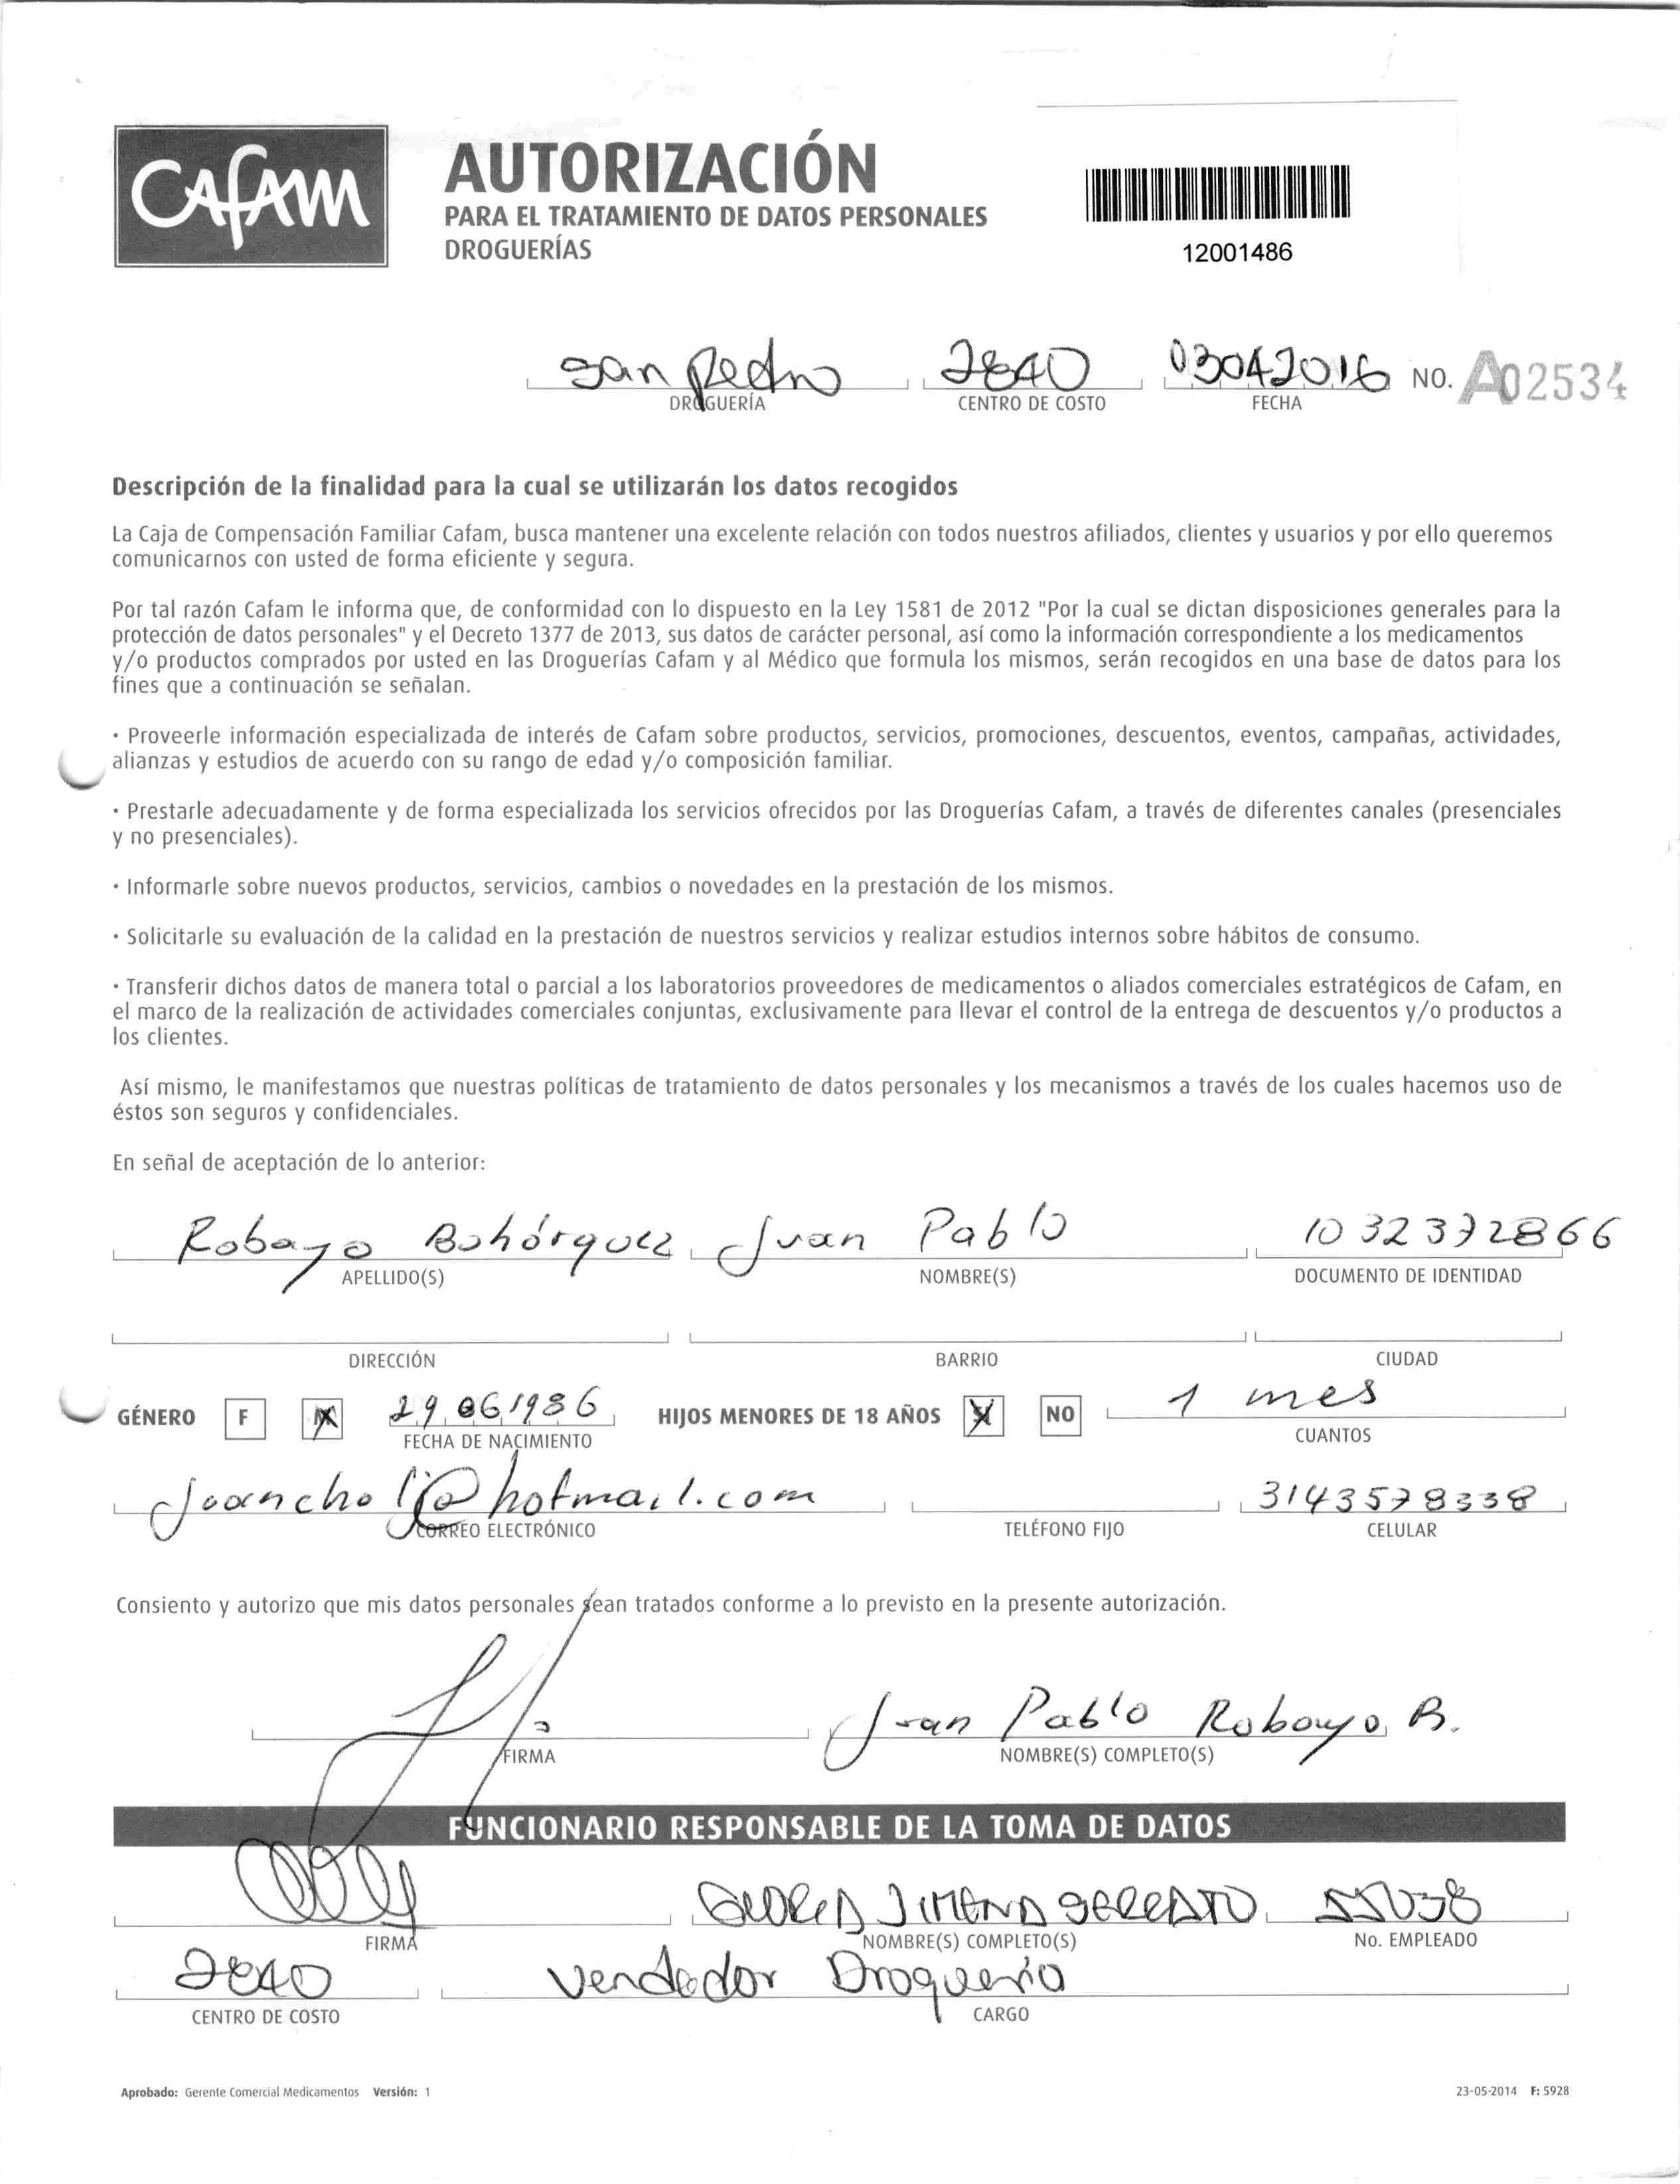 CAFAM
AUTORIZACIÓN
PARA EL TRATAMIENTO DE DATOS PERSONALES
DROGUERÍAS
12001486
san Pedro 2840 03042016 NO. A02534
DROGUERÍA CENTRO DE COSTO FECHA
Descripción de la finalidad para la cual se utilizarán los datos recogidos
La Caja de Compensación Familiar Cafam, busca mantener una excelente relación con todos nuestros afiliados, clientes y usuarios y por ello queremos
comunicarnos con usted de forma eficiente y segura.
Por tal razón Cafam le informa que, de conformidad con lo dispuesto en la Ley 1581 de 2012 "Por la cual se dictan disposiciones generales para la
protección de datos personales" y el Decreto 1377 de 2013, sus datos de carácter personal, así como la información correspondiente a los medicamentos
y/o productos comprados por usted en las Droguerías Cafam y al Médico que formula los mismos, serán recogidos en una base de datos para los
fines que a continuación se señalan.
· Proveerle información especializada de interés de Cafam sobre productos, servicios, promociones, descuentos, eventos, campañas, actividades,
alianzas y estudios de acuerdo con su rango de edad y/o composición familiar.
· Prestarle adecuadamente y de forma especializada los servicios ofrecidos por las Droguerías Cafam, a través de diferentes canales (presenciales
y no presenciales).
· Informarle sobre nuevos productos, servicios, cambios o novedades en la prestación de los mismos.
· Solicitarle su evaluación de la calidad en la prestación de nuestros servicios y realizar estudios internos sobre hábitos de consumo.
· Transferir dichos datos de manera total o parcial a los laboratorios proveedores de medicamentos o aliados comerciales estratégicos de Cafam, en
el marco de la realización de actividades comerciales conjuntas, exclusivamente para llevar el control de la entrega de descuentos y/o productos a
los clientes.
Así mismo, le manifestamos que nuestras políticas de tratamiento de datos personales y los mecanismos a través de los cuales hacemos uso de
éstos son seguros y confidenciales.
En señal de aceptación de lo anterior:
Robayo Bohórquez Juan Pablo 1032372866
APELLIDO(S) NOMBRE(S) DOCUMENTO DE IDENTIDAD
DIRECCIÓN BARRIO CIUDAD
GÉNERO F 29061986 HIJOS MENORES DE 18 AÑOS NO 1 mes
FECHA DE NACIMIENTO CUANTOS
@hotmail.com 3143578338
CORREO ELECTRÓNICO TELÉFONO FIJO CELULAR
Consiento y autorizo que mis datos personales sean tratados conforme a lo previsto en la presente autorización.
Juan Pablo Robayo B.
FIRMA NOMBRE(S) COMPLETO(S)
FUNCIONARIO RESPONSABLE DE LA TOMA DE DATOS
JIMENA 55038
FIRMA NOMBRE(S) COMPLETO(S) No. EMPLEADO
2840 Vendedor Droguería
CENTRO DE COSTO CARGO
Aprobado: Gerente Comercial Medicamentos Versión: 1 23-05-2014 F: 5928